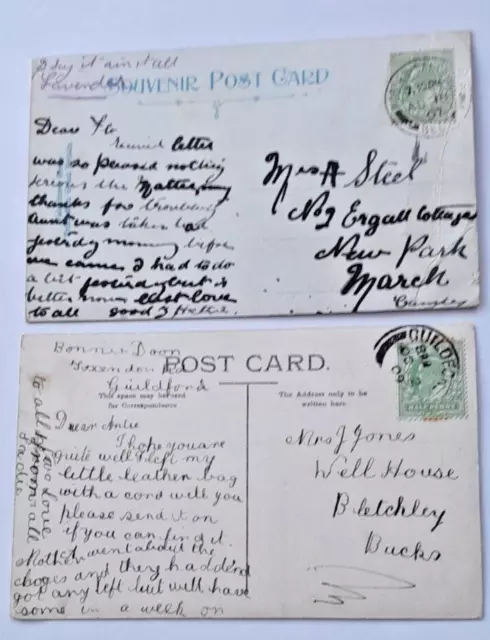 I say it aint all
Lavender
SOUVENIR POST CARD
Dear Flo
received letter
was so pleased nothing
serious the matter, many
thanks for troubling
Aunt was taken bad
yesterdy morning before
we came I had to do
a bit yesterdy but is
better now best love
to all good J Hettie
Mrs A Steel
No 9 Ergall Cottages
New Park
March
Cambs
Bonnie Doon
Guildford
POST CARD.
This space may be used
for Correspondence
The Address only to be
written here.
GUILDFORD
HALF PENNY
Dear Antie
I hope you are
quite well I left my
little leather bag
with a cord will you
please send it on
if you can find it.
Mother went about the
choges and they had dend
got any left but will have
some in a week on
to all from all
love
Sadie
Mrs J Jones
Well House
Bletchley
Bucks